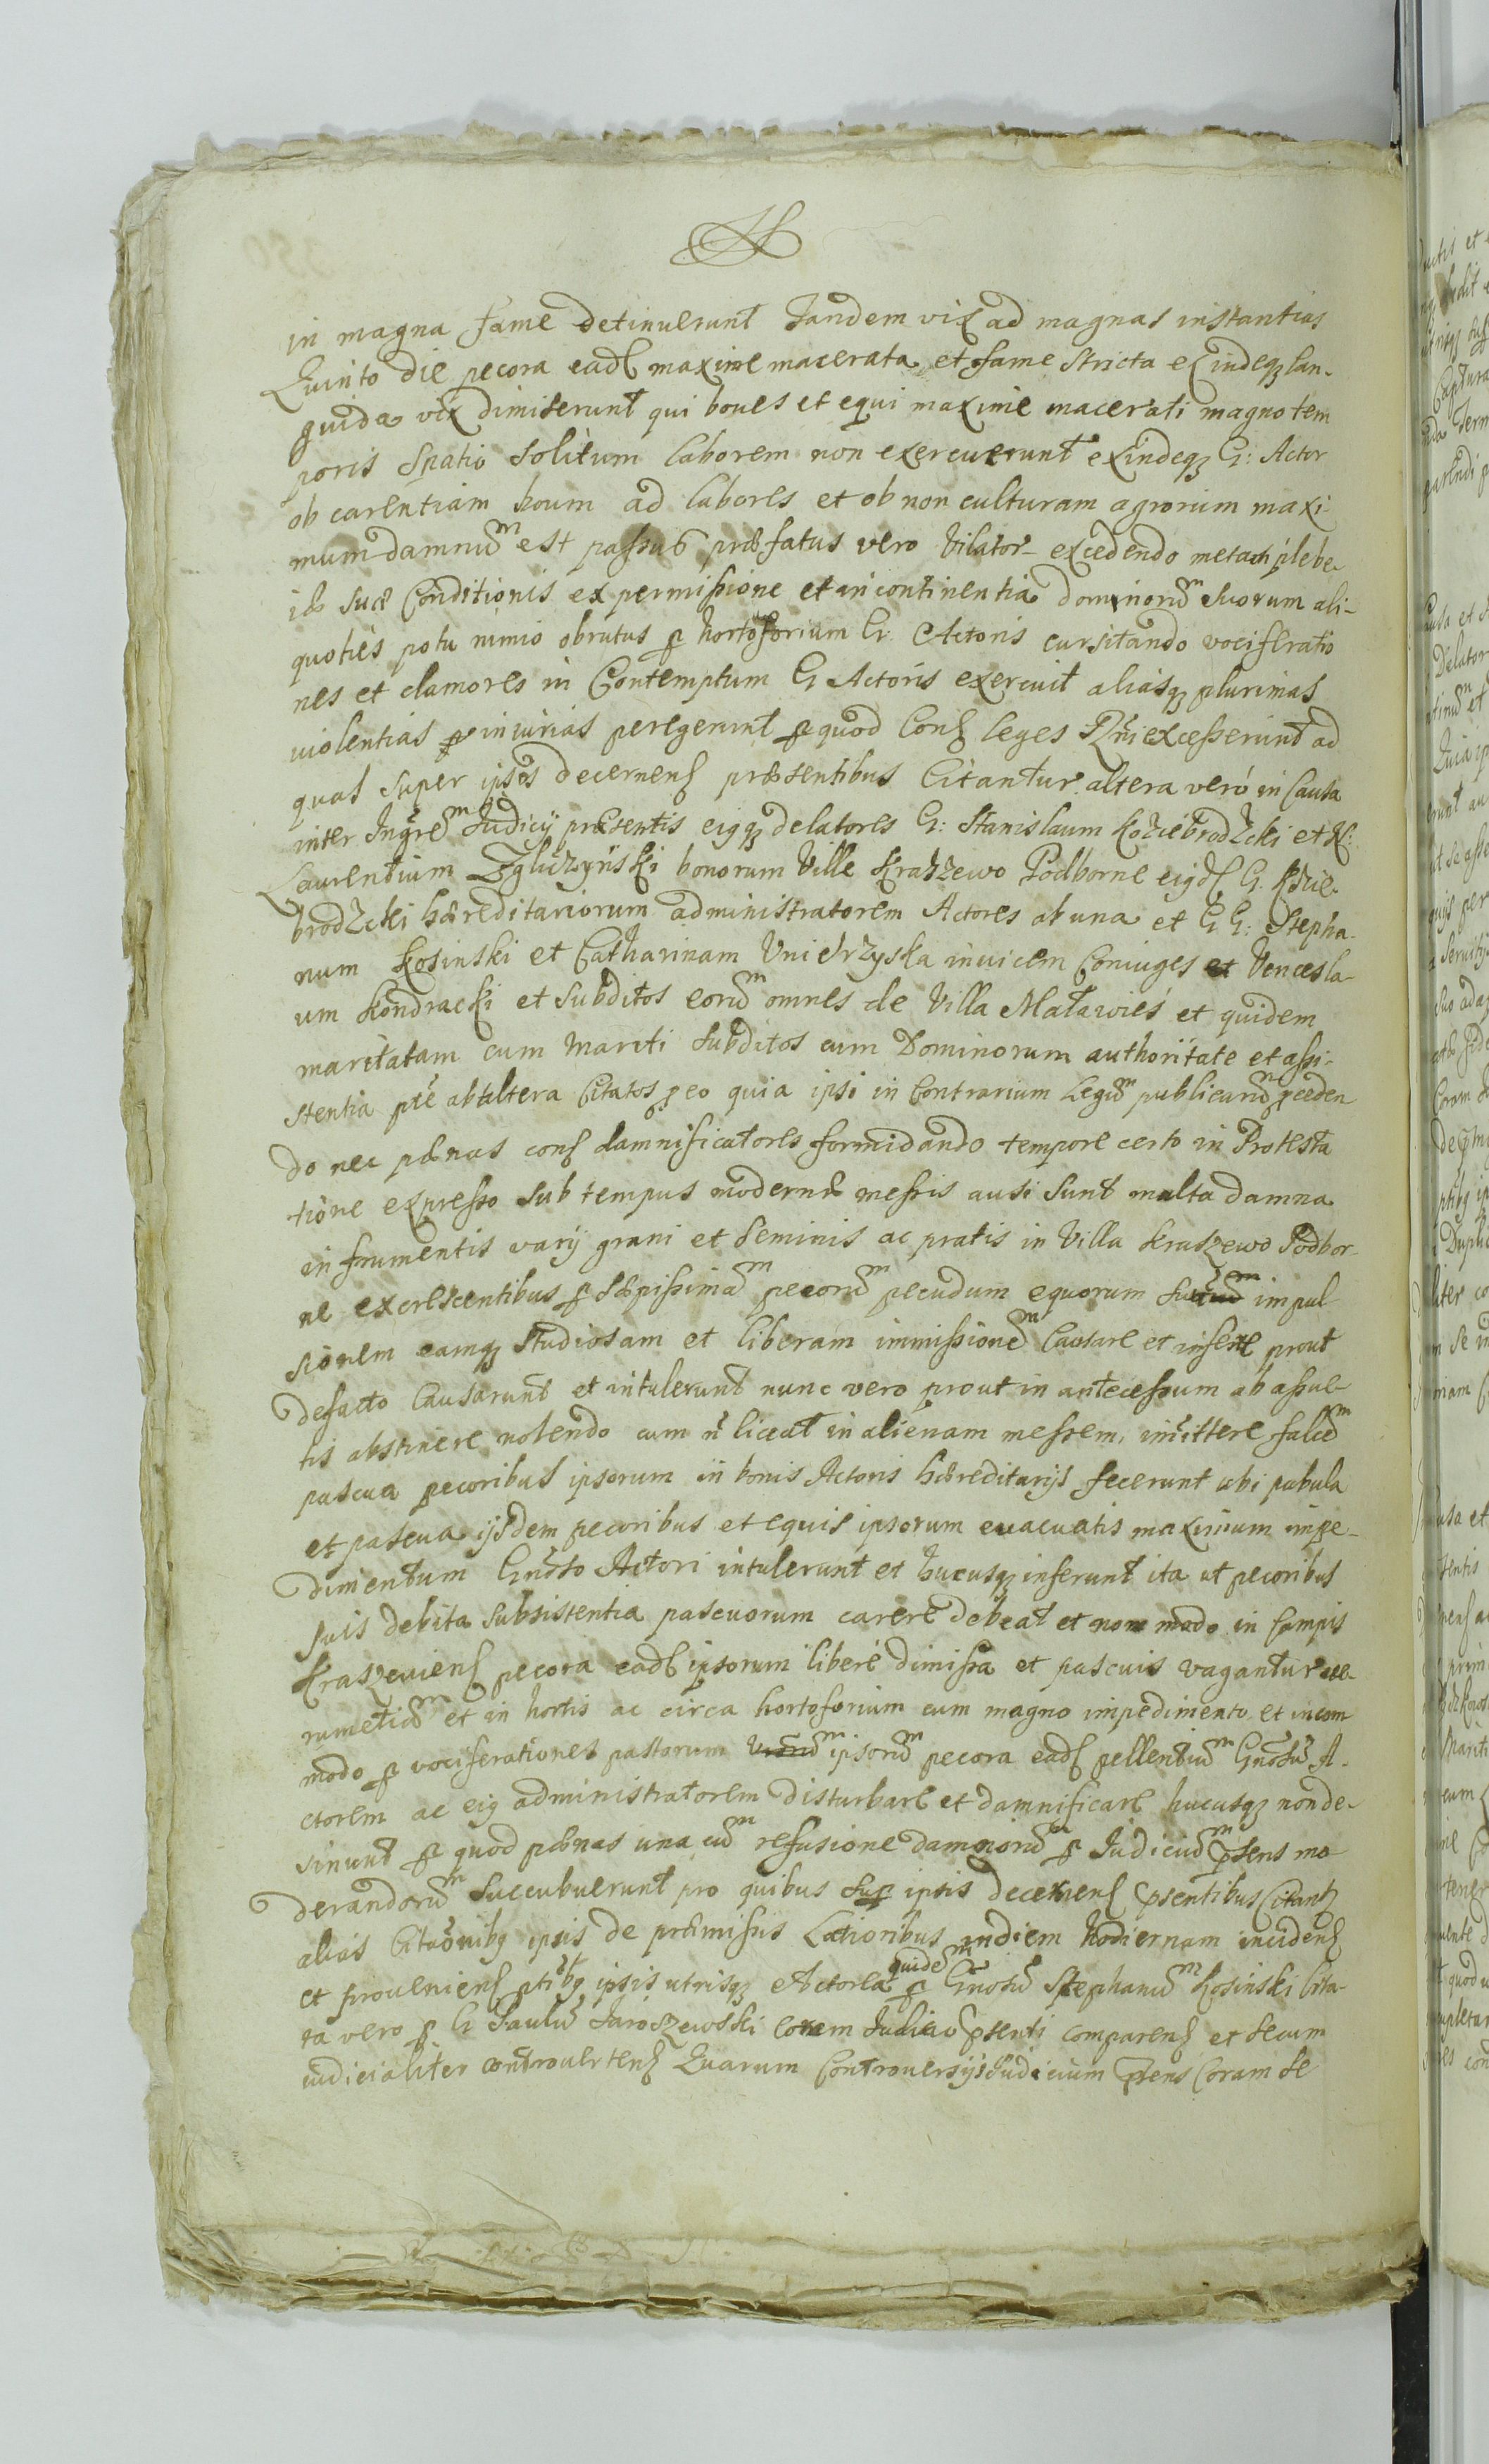 in magna fame detinuerunt Tandem vix ad magnas instantias
Quinto die pecora ead maxime macerata et fame stricta exindeq lan-
guida vix dimiserunt qui boues et equi maxime macerati magno tem
poris Spatio Solitum laborem non exercuerunt exindeq G: Actor
ob carentiam eoum ad labores et ob non culturam agrorum maxi
mum damnum est passus præfatus vero Vilator excedendo metam plebe-
iæ suæ Conditionis ex permissione et incontinentia dominorum Suorum ali-
quoties potu nimio obrutus p hortoforium G. Actoris cursitando vociferatio
nes et clamores in Contemptum G Actoris exercuit aliasq plurimas
violentias p iniurias peregerunt p quod Cons leges Rgni excesserunt ad
quas super ipsos decernens præsentibus Citantur altera vero in Causa
inter Ingrem Iudicij præsentis eigq delatores G: Stanislaum Koziebrodzki et N:
Laurentium Zgliczynski bonorum Ville Kraszewo Podborne eigd G. Kozie-
brodzcki hæreditariorum administratorem Actores ab una et G G: Stepha-
num Kosinski et Catharinam Unierzyska inuicem Coniuges et Vencesla-
um Kondracki et subditos eorum omnes de Villa Maławies et quidem
maritatam cum Mariti Subditos cum Dominorum authoritate et assi-
stentia pte ab altera Citatos p eo quia ipsi in Contrarium Legum publicarum pceden
do nec pænas cons damnificatores formidando tempore certo in Protesta
tione expresso sub tempus modernæ messis ausi sunt multa damna
in frumentis varij grani et seminis ac pratis in Villa Kraszewo Podbor-
ne excrescentibus p sæpissimam pecorum pecudum equorum suorum impul
sionem eamq studiosam et liberam immissionem Causare et inferre prout
defacto Causarunt et intulerunt nunc vero prout in antecessum ab assue-
tis abstinere nolendo cum n liceat in alienam messem, imittere falcem
pascua pecoribus ipsorum in bonis Actoris hæreditarijs fecerunt ubi pabula
et pascua ijsdem pecoribus et equis ipsorum euacuatis maximum impe-
dimentum Gnoso Actori intulerunt et hucusq inferunt ita ut pecoribus
suis debita subsistentia pascuorum carere debeat et non modo in Campis
Kraszeuiens pecora ead ipsorum libere dimissa et pascuis vagantur ue-
rumetiam et in hortis ac circa hortoforium cum magno impedimento et incom
modo p vociferationes pastorum ipsorum pecora ead pellentium Gnosum A-
ctorem ac eig administratorem disturbare et damnificare hucusq non de-
sinunt p quod pænas una cum refusione damnorum p Iudicium psens mo
derandorum succubuerunt pro quibus sup ipsis decernens psentibus Citant
alias Citaonibg ipsis de præmissis Latioribus in diem hodiernam incidens
et proueniens ptibg ipsis utrisq Actorea quidem p Gnosum Stephanum Kosinski Cita-
ta vero p G Paulum Jaroszewski coram Iudicio psenti comparens et secum
iudicialiter controuertens Quarum Controuersijs Iudicium psens Coram se